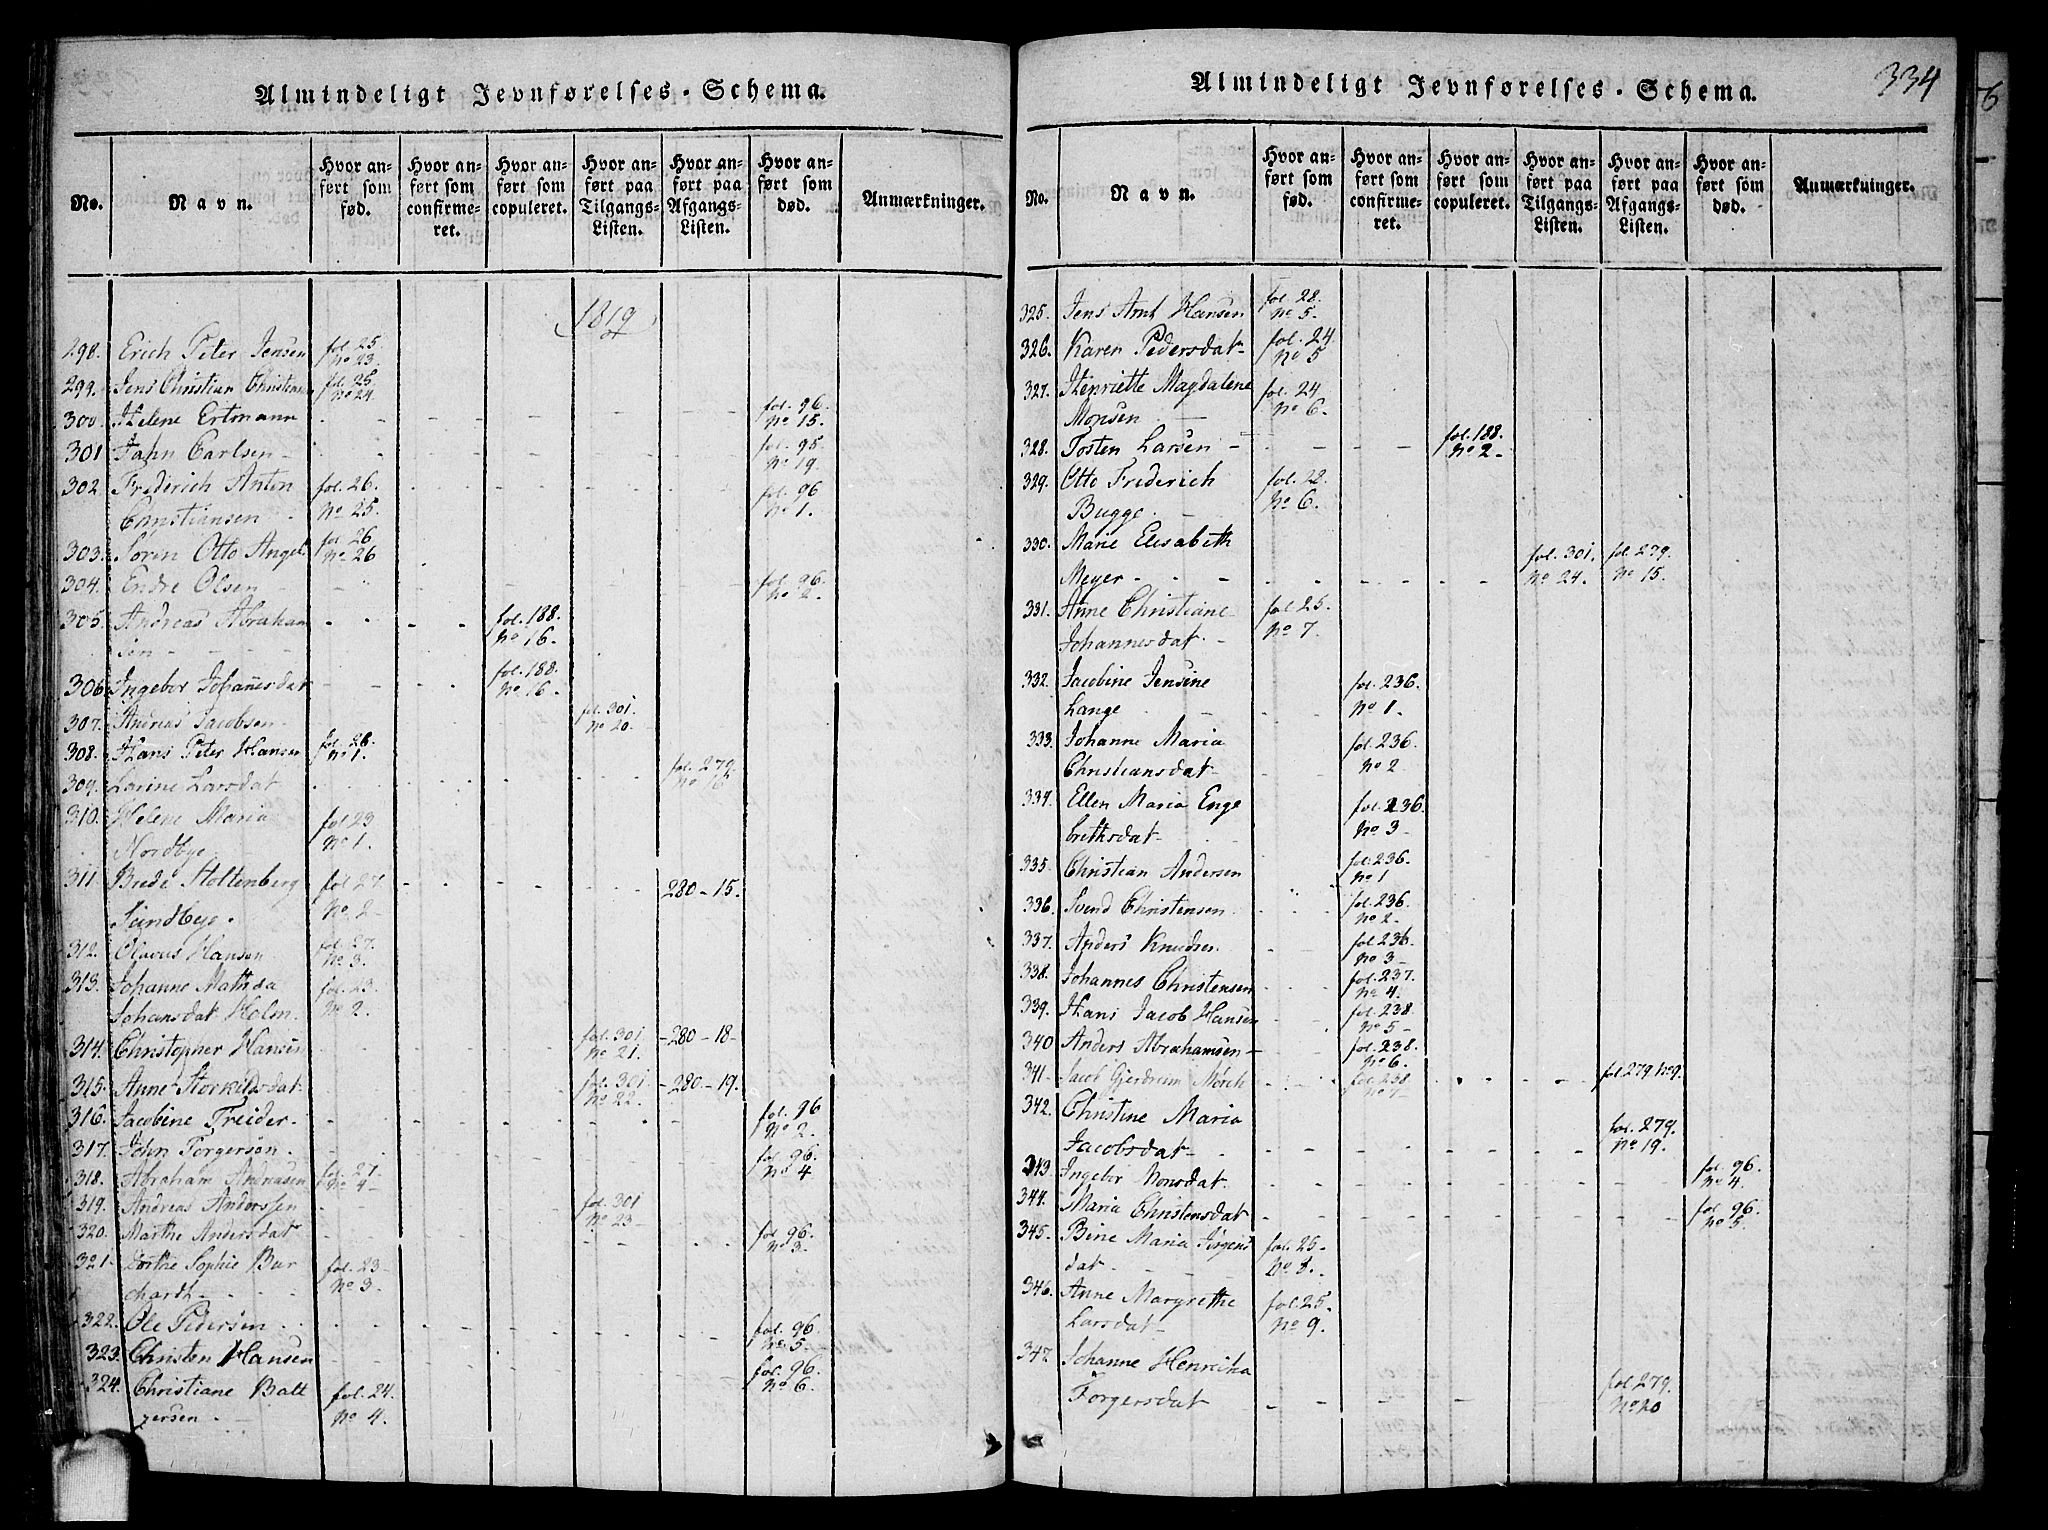 Almindeligt Jevnførelses-Schema.
No. Navn. Hvor anført som fød. Hvor anført som confirmeret. Hvor anført som copuleret. Hvor anført paa Tilgangs-Listen. Hvor anført paa Afgangs-Listen. Hvor anført som død. Anmærkninger.
1819
298. Erich Peter Jensen fol. 25. No 23.
299. Jens Christian Christians fol. 25. No 24.
300. Helene Ertmann fol. 96. No 15.
301 Jahn Carlsen fol. 95 No 19.
302. Frederich Anton fol. 26. fol. 96
Christiansen No 25. No 1.
303. Søren Otto Angel. fol 26 No 26
304. Endre Olsen fol. 96. No 2.
305. Andreas Abraham fol. 188.
sen No 16.
306. Ingebor Johannesdat fol. 188. No 16.
307. Andreas Jacobsen fol. 301. No 20.
308. Hans Peter Hansen fol. 26. No 1.
309. Larine Larsdat fol. 279. No 16
310. Helene Maria fol 23
Nordbye No 1.
311 Brede Stoltenberg fol 27. 280-15.
Sundbye. No. 2
312. Olavus Hansen fol. 27. No. 3.
313. Johanne Mathea fol. 23.
Johansdat Holm. No 2.
314. Christopher Hansen fol. 301 No 21. 280-18
315. Anne Storkildsdat fol. 301 No 22. 280-19.
316. Jacobine Treider fol. 96 No 2.
317. John Torgersøn fol. 96. No 4
318. Abraham Andreasen fol. 27 No 4
319. Andreas Anderssen fol. 301 No 23
320. Marthe Andersdat fol. 96. No 3.
321. Dorthe Sophie Bur fol. 23
chardt No 3.
322. Ole Pedersen fol. 96 No 5.
323. Christen Hansen fol. 96. No 6.
324. Christiane Balt fol. 24.
zersen. No 4.
Almindeligt Jevnførelses-Schema.
334
No. Navn. Hvor anført som fød. Hvor anført som confirmeret. Hvor anført som copuleret. Hvor anført paa Tilgangs-Listen. Hvor anført paa Afgangs-Listen. Hvor anført som død. Anmærkninger.
325. Jens Arnt Hansen fol. 28. No 5.
326. Karen Pedersdat fol. 24. No 5
327. Henriette Magdalene fol. 24
Monsen No 6.
328. Tosten Larsen fol. 188. No 2
329. Otto Frederich fol. 28.
Bugge No 6.
330. Marie Elisabeth fol. 301. fol. 279.
Meyer No 24. No 15.
331. Anne Christiane fol 25.
Johannesdat No 7.
332. Jacobine Jensine fol. 236.
Lange No 1.
333. Johanne Maria fol. 236.
Christiansdat No 2
334. Ellen Maria Enge fol. 236.
brethsdat No 3
335. Christian Andersen fol. 236. No 1
336. Svend Christensen fol. 236. No 2
337. Anders Knudsen fol. 236. No 3
338. Johannes Christensen fol. 237. No 4.
339. Hans Jacob Hansen fol. 238. No 5
340 Anders Abrahamsen fol. 238. No 6.
341 Jacob Gjerdrum Mørch fol. 238 No 7 fol 279 No 9.
342. Christine Maria fol. 279.
Jacobsdat No 19.
343. Ingebor Monsdat fol. 96. No 4.
344. Maria Christensdat fol. 96. No 5.
345. Bine Maria Jørgens fol. 25
dat No 8.
346. Anne Margrethe fol. 25.
Larsdat No 9.
347. Johanne Henricka fol 279.
Torgersdat No 20
6